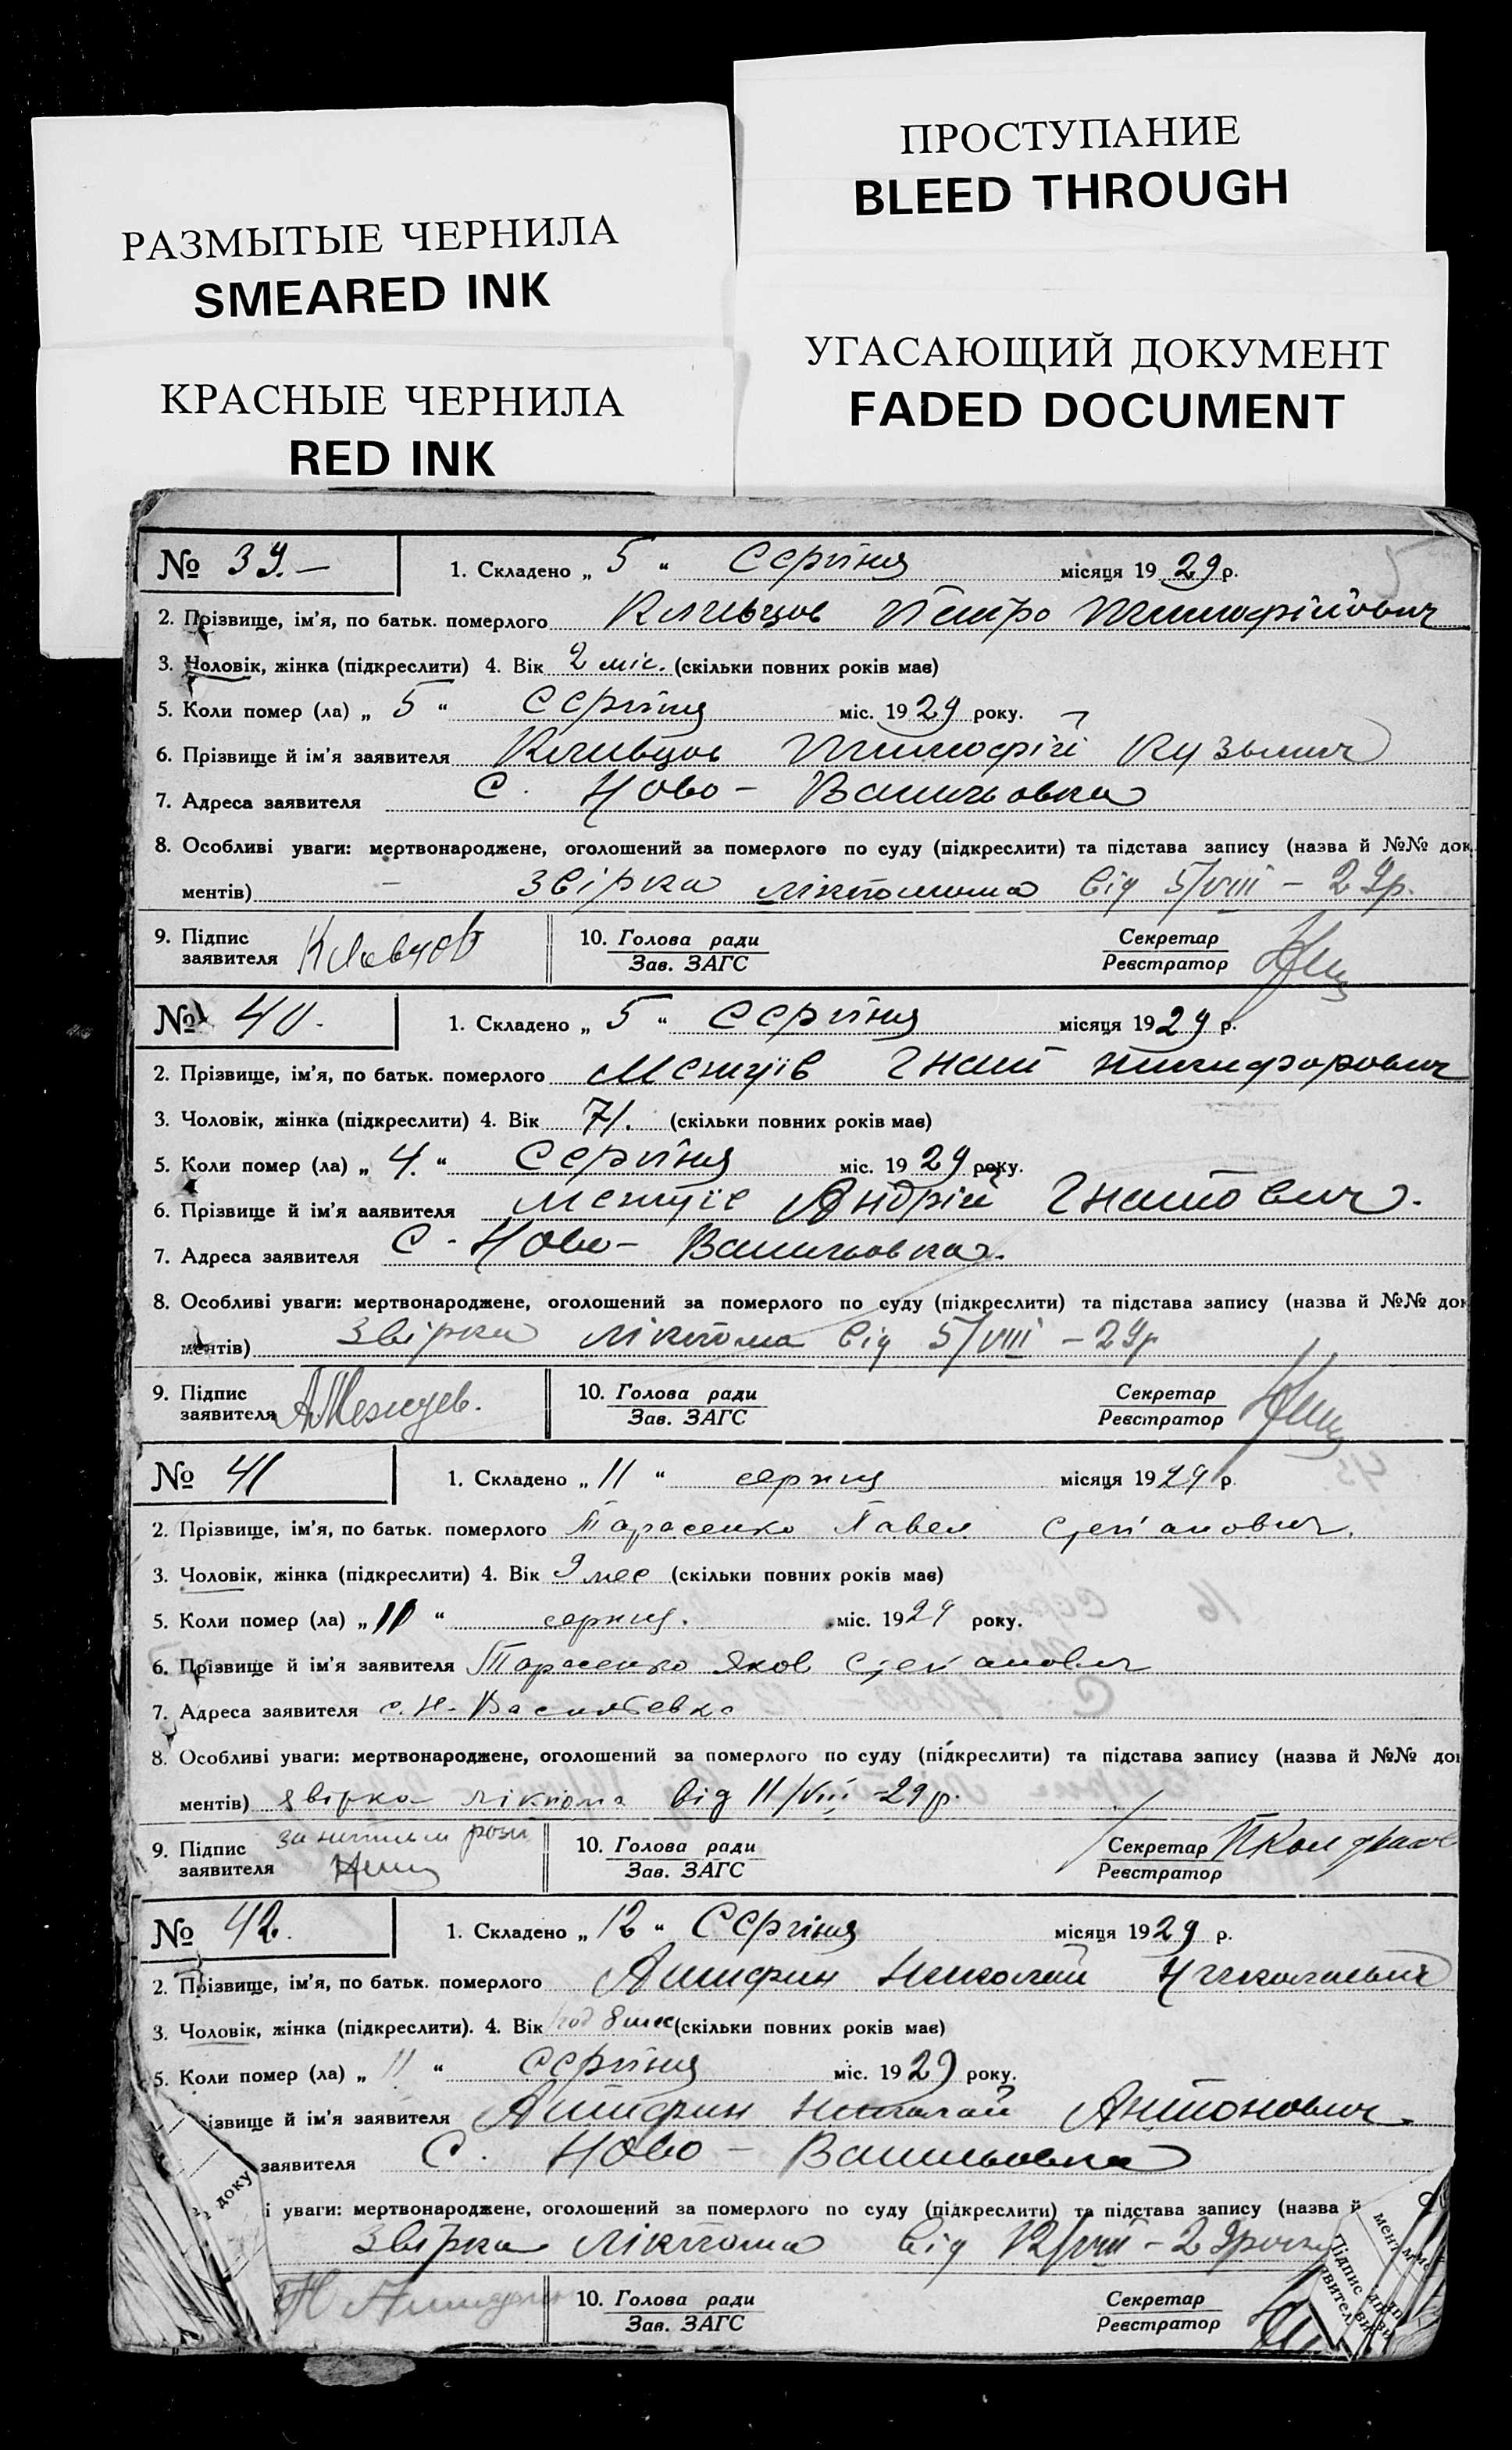 РАЗМЫТЫЕ ЧЕРНИЛА
SMEARED INK
КРАСНЫЕ ЧЕРНИЛА
RED INK
ПРОСТУПАНИЕ
BLEED THROUGH
УГАСАЮЩИЙ ДОКУМЕНТ
FADED DOCUMENT
№ 39.— 1. Складено „ 5 “ Серпня місяця 19 29 р.
2. Прізвище, ім'я, по батьк. померлого Петро Тимофійович
3. Чоловік, жінка (підкреслити) 4. Вік 2 міс. (скільки повних років має)
5. Коли помер (ла) „ 5 “ Серпня міс. 19 29 року.
6. Прізвище й ім'я заявителя Тимофій Кузьмич
7. Адреса заявителя С. Ново - Васильовка
8. Особливі уваги: мертвонароджене, оголошений за померлого по суду (підкреслити) та підстава запису (назва й №№ док
ментів) — звірка від 5/VIII – 29р.
9. Підпис заявителя 10. Голова ради Зав. ЗАГС Секретар Реєстратор
№ 40. 1. Складено „ 5 “ Серпня місяця 19 29 р.
2. Прізвище, ім'я, по батьк. померлого Гнат Никифорович
3. Чоловік, жінка (підкреслити) 4. Вік 71. (скільки повних років має)
5. Коли помер (ла) „ 4. “ Серпня міс. 19 29 року.
6. Прізвище й ім'я заявителя Андрій Гнатович.
7. Адреса заявителя С - Ново - Васильовка.
8. Особливі уваги: мертвонароджене, оголошений за померлого по суду (підкреслити) та підстава запису (назва й №№ док
ментів) Звірка лікпома від 5/VIII – 29р
9. Підпис заявителя А Межуев. 10. Голова ради Зав. ЗАГС Секретар Реєстратор
№ 41 1. Складено „ 11 “ серпня місяця 19 29 р.
2. Прізвище, ім'я, по батьк. померлого Тарасенко Павел Степанович.
3. Чоловік, жінка (підкреслити) 4. Вік 9 мес (скільки повних років має)
5. Коли помер (ла) „ “ серпня. міс. 19 29 року.
6. Прізвище й ім'я заявителя Тарасенко Яков Степанович
7. Адреса заявителя с. Н - Васильевка
8. Особливі уваги: мертвонароджене, оголошений за померлого по суду (підкреслити) та підстава запису (назва й №№ док
ментів) звірка лікпома від 11/VIII – 29 р.
9. Підпис заявителя 10. Голова ради Зав. ЗАГС Секретар Реєстратор
№ 42. 1. Складено „ 12 “ Серпня місяця 19 29 р.
2. Прізвище, ім'я, по батьк. померлого Николай Николаевич
3. Чоловік, жінка (підкреслити). 4. Вік 1 год 8 мес (скільки повних років має)
5. Коли помер (ла) „ 11 “ Серпня міс. 19 29 року.
різвище й ім'я заявителя Николай Антонович
заявителя С. Ново - Васильовка
і уваги: мертвонароджене, оголошений за померлого по суду (підкреслити) та підстава запису (назва й
Звірка лікпома від 12/VIII – 29 року
10. Голова ради Зав. ЗАГС Секретар Реєстратор